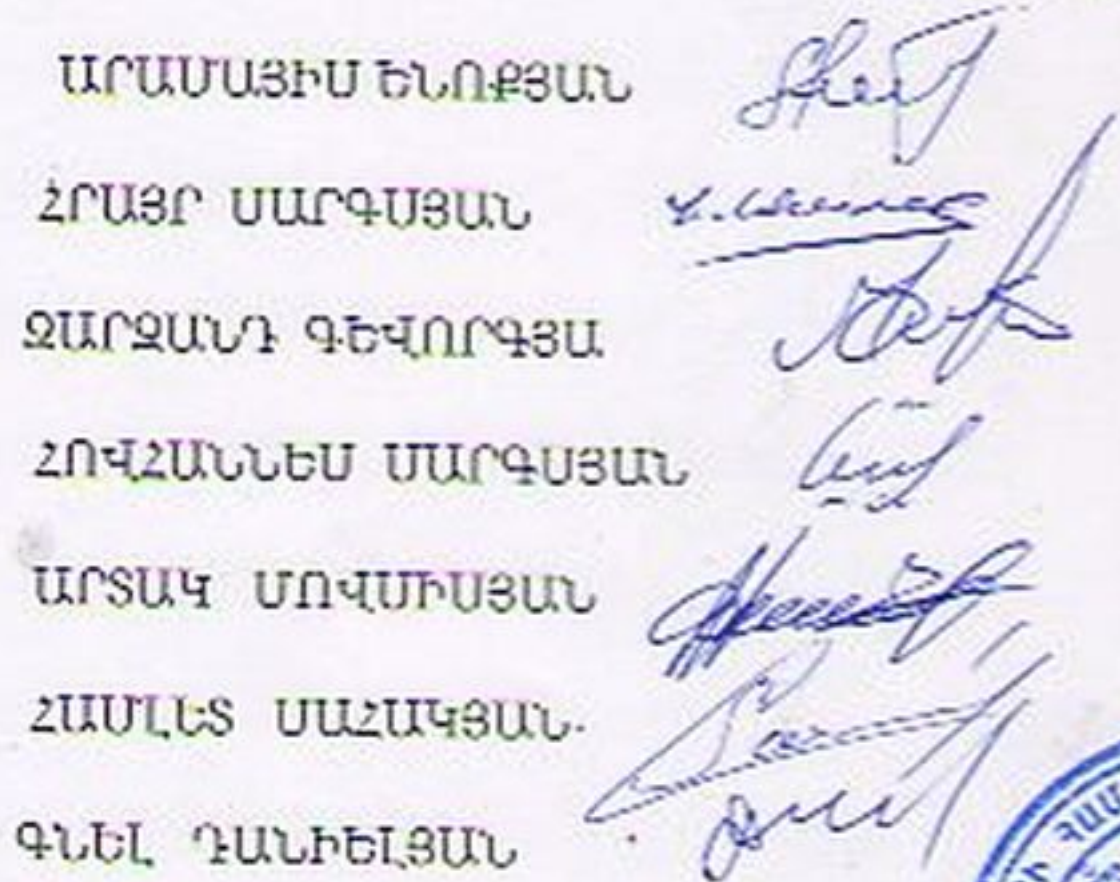 ԱՐԱՄԱՅԻՍ ԵՆՈՔՅԱՆ
ՀՐԱՅՐ ՍԱՐԳՍՅԱՆ
ՋԱՐՋԱՆԴ ԳԵՎՈՐԳՅԱ
ՀՈՎՀԱՆՆԵՍ ՍԱՐԳՍՅԱՆ
ԱՐՏԱԿ ՄՈՎՍԻՍՅԱՆ
ՀԱՄԼԵՏ ՍԱՀԱԿՅԱՆ
ԳՆԵԼ ԴԱՆԻԵԼՅԱՆ